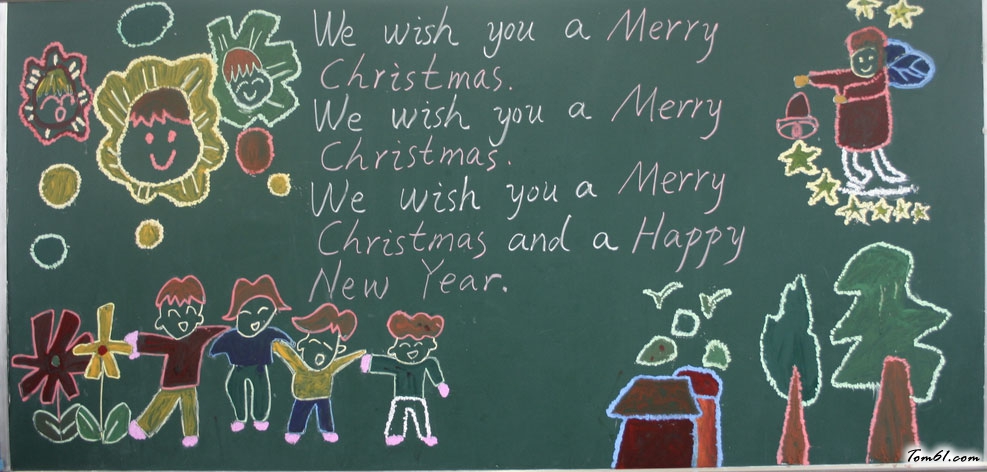 We wish you a Merry
Christmas.
We wish you a Merry
Christmas.
We wish you a Merry
Christmas and a Happy
New Year.
Tom61.com